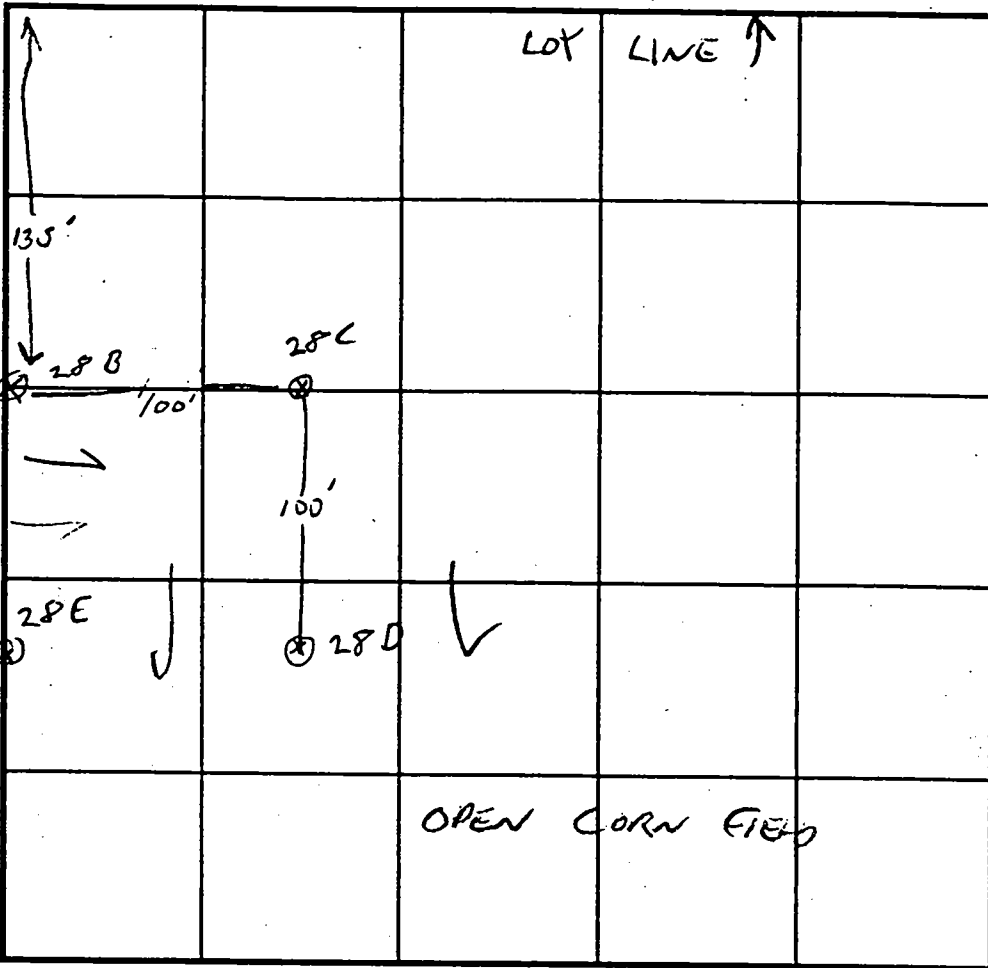 LOT LINE ↑
135'
28 B
28 C
100'
100'
28 E
28 D
OPEN CORN FIELD